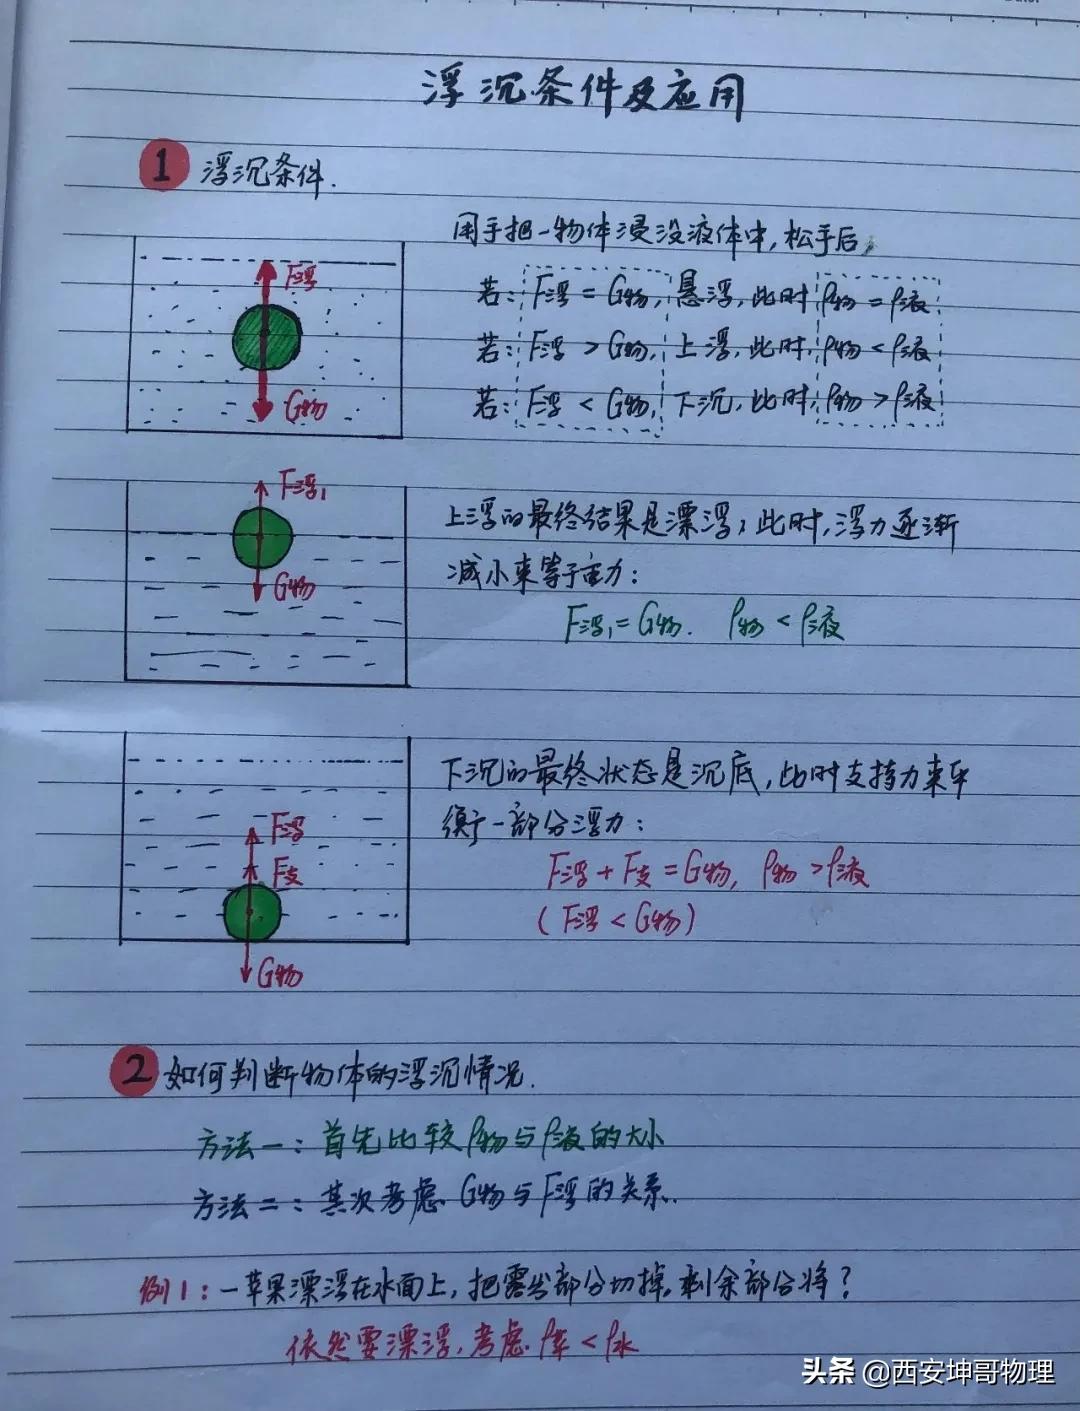 浮沉条件及应用
1 浮沉条件.
用手把一物体浸没液体中,松手后,
若: F浮 = G物, 悬浮, 此时 ρ物 = ρ液
若: F浮 > G物, 上浮, 此时, ρ物 < ρ液
若: F浮 < G物, 下沉, 此时, ρ物 > ρ液
F浮
G物
上浮的最终结果是漂浮, 此时, 浮力逐渐
减小来等于重力:
F浮1 = G物. ρ物 < ρ液
F浮1
G物
下沉的最终状态是沉底, 此时支持力来平
衡一部分浮力:
F浮 + F支 = G物, ρ物 > ρ液
(F浮 < G物)
F浮
F支
G物
2 如何判断物体的浮沉情况.
方法一: 首先比较ρ物与ρ液的大小
方法二: 其次考虑 G物与F浮的关系.
例1: 一苹果漂浮在水面上, 把露出部分切掉, 剩余部分将?
依然要漂浮, 考虑 ρ苹 < ρ水
头条 @西安坤哥物理